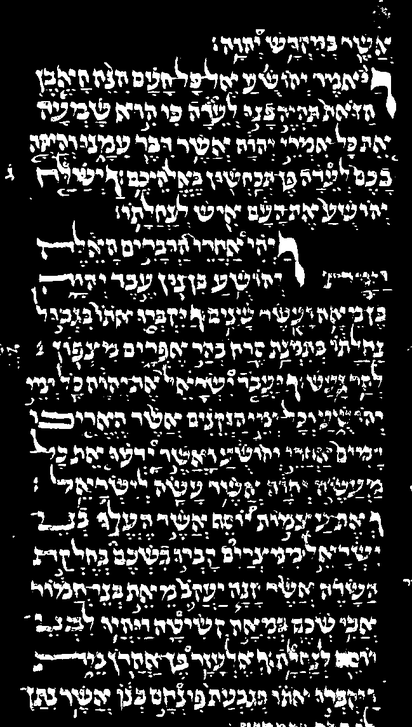 אשר במקדש יהוה:
ויאמר יהושע אל כל העם הנה האבן
הזאת תהיה בנו לעדה כי היא שמעה
את כל אמרי יהוה אשר דבר עמנו והיתה
בכם לעדה פן תכחשון באלהיכם: וישלח
יהושע את העם איש לנחלתו:
ויהי אחרי הדברים האלה
וימת יהושע בן נון עבד יהוה
בן מאה ועשר שנים: ויקברו אתו בגבול
נחלתו בתמנת סרח בהר אפרים מצפון
להר געש: ויעבד ישראל את יהוה כל ימי
יהושע וכל ימי הזקנים אשר האריכו
ימים אחרי יהושע ואשר ידעו את כל
מעשה יהוה אשר עשה לישראל:
ואת עצמות יוסף אשר העלו בני
ישראל ממצרים קברו בשכם בחלקת
השדה אשר קנה יעקב מאת בני חמור
אבי שכם במאה קשיטה ויהיו לבני
יוסף לנחלה: ואלעזר בן אהרן מת
ויקברו אתו בגבעת פינחס בנו אשר נתן